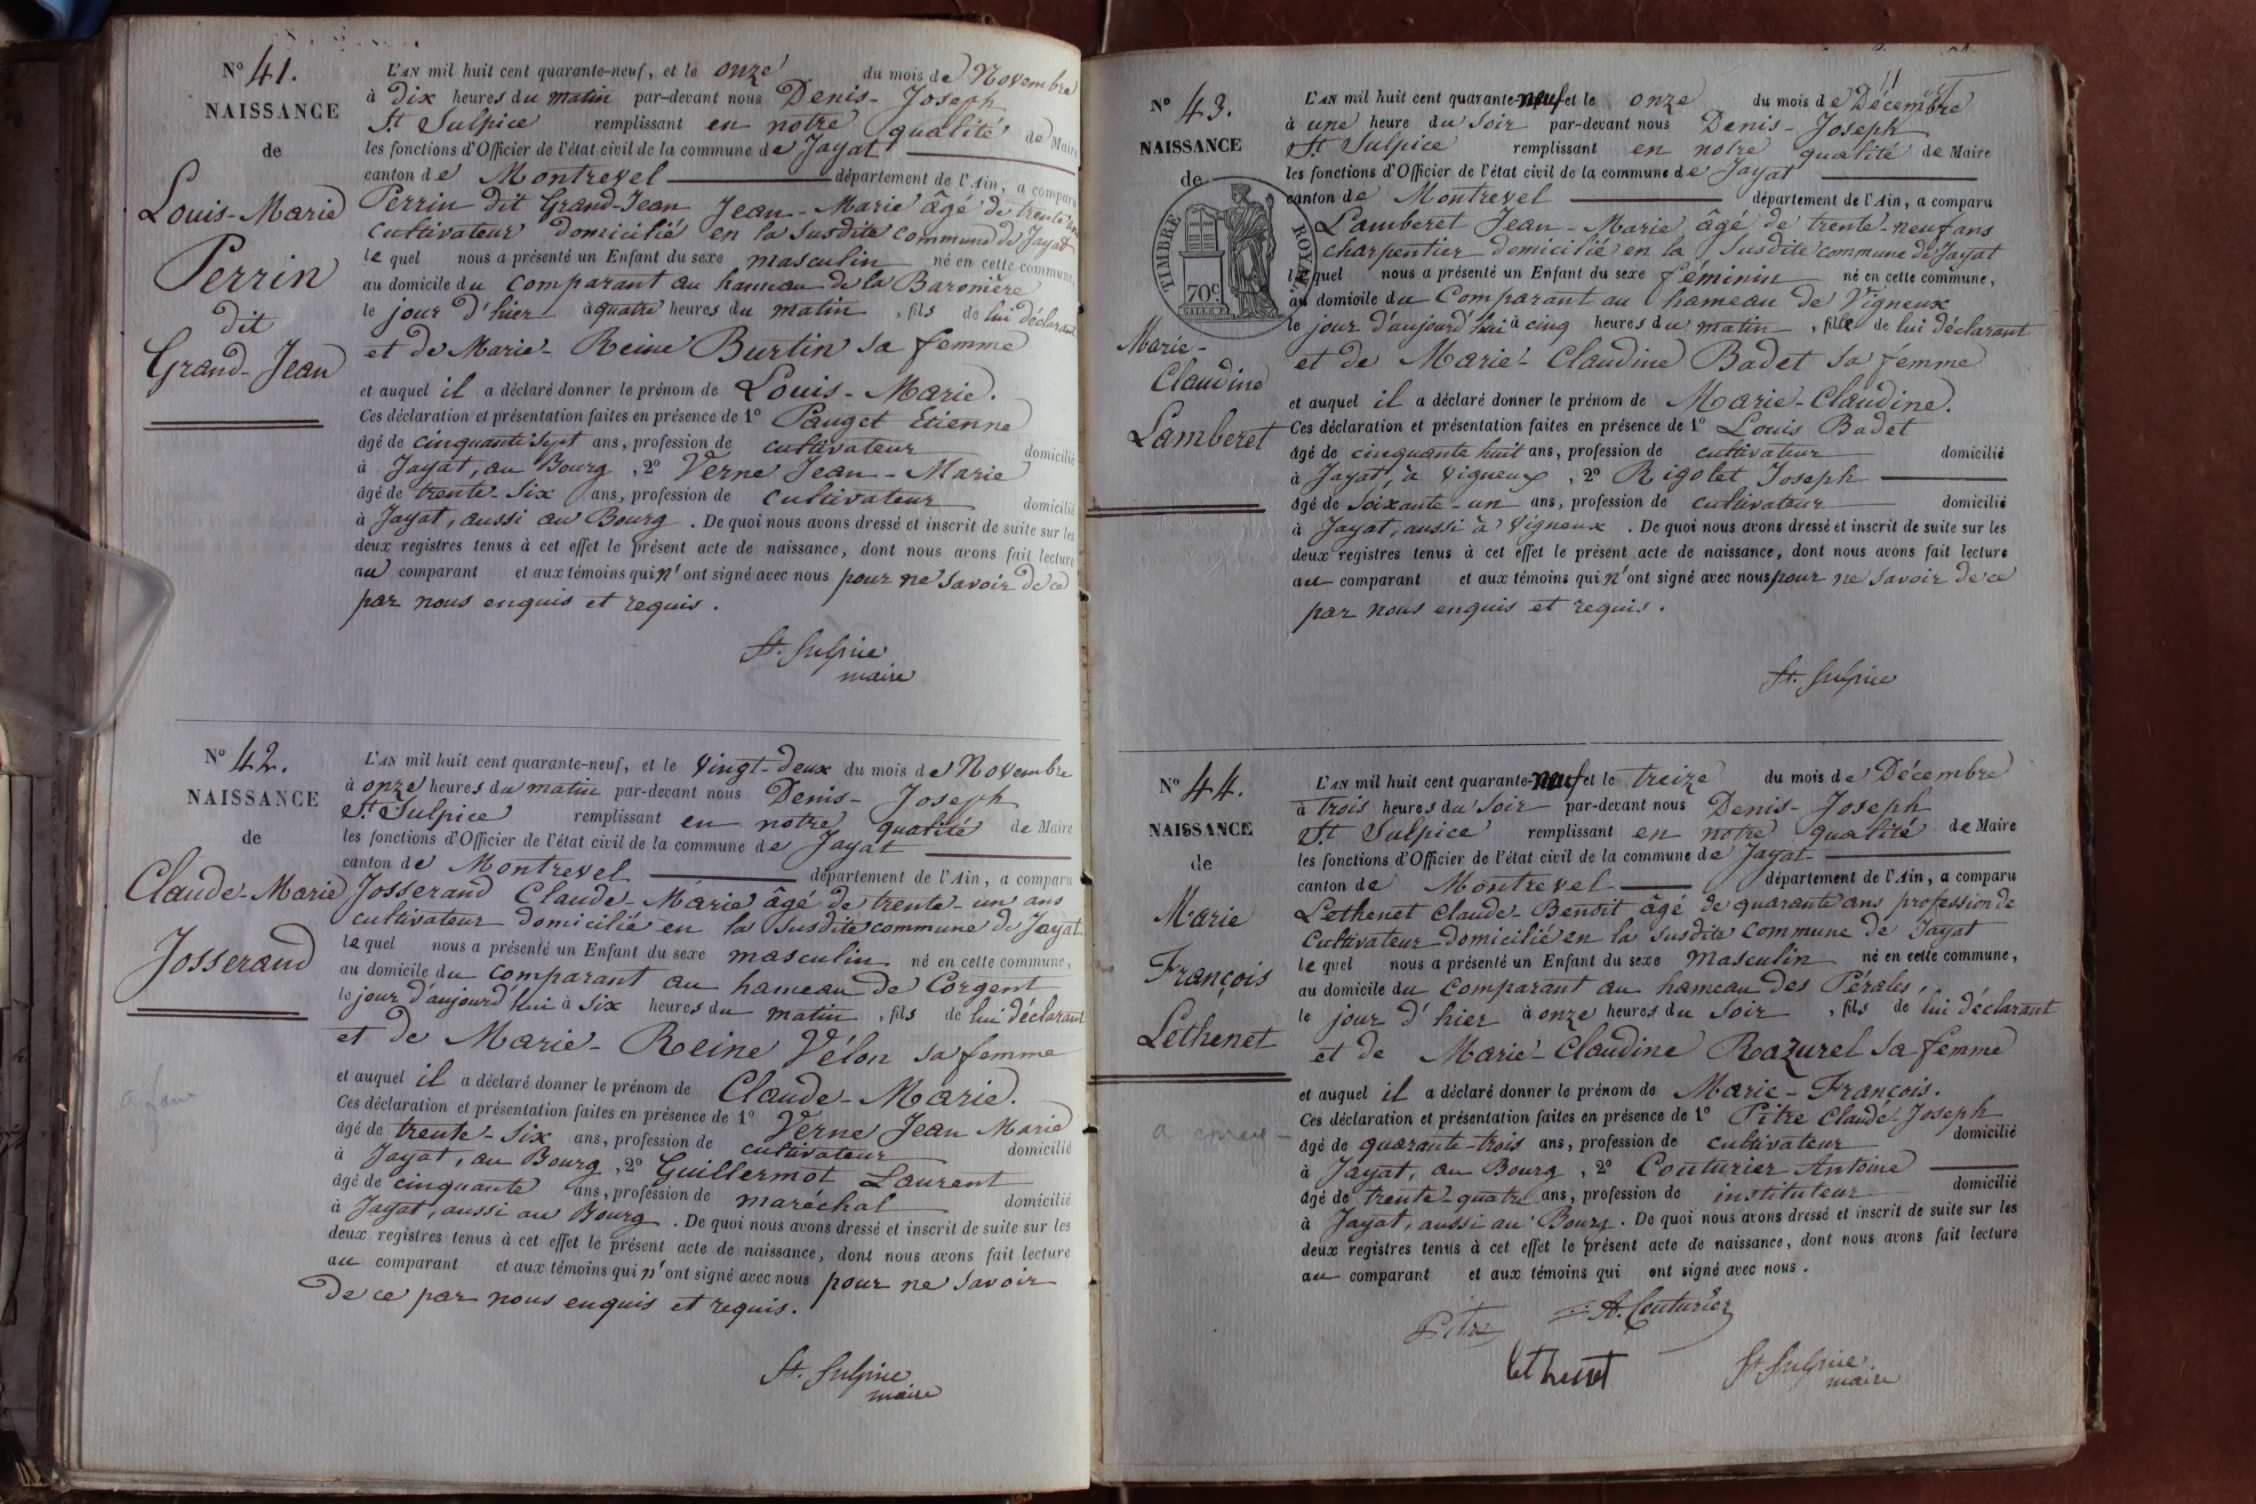 N° 41.
NAISSANCE
de
Louis-Marie
Perrin
dit
Grand-Jean
L'AN mil huit cent quarante-neuf, et le onze du mois de Novembre
à dix heures du matin par-devant nous Denis-Joseph
St. Sulpice remplissant en notre qualité de Maire
les fonctions d'Officier de l'état civil de la commune de Jayat
canton de Montrevel département de l'Ain, a comparu
Perrin dit Grand-Jean Jean-Marie âgé de trente
cultivateur domicilié en la susdite commune de Jayat
lequel nous a présenté un Enfant du sexe masculin né en cette commune,
au domicile du comparant au hameau de la Baronière
le jour d'hier à quatre heures du matin, fils de lui déclarant
et de Marie-Reine Burtin sa femme
et auquel il a déclaré donner le prénom de Louis-Marie.
Ces déclaration et présentation faites en présence de 1° Pauget Etienne
âgé de cinquante sept ans, profession de cultivateur domicilié
à Jayat, au Bourg, 2° Verne Jean-Marie
âgé de trente-six ans, profession de cultivateur domicilié
à Jayat, aussi au Bourg. De quoi nous avons dressé et inscrit de suite sur les
deux registres tenus à cet effet le présent acte de naissance, dont nous avons fait lecture
au comparant et aux témoins qui n'ont signé avec nous pour ne savoir de ce
par nous enquis et requis.
St. Sulpice
maire
N° 42.
NAISSANCE
de
Claude-Marie
Josserand
L'AN mil huit cent quarante-neuf, et le vingt-deux du mois de Novembre
à onze heures du matin par-devant nous Denis-Joseph
St. Sulpice remplissant en notre qualité de Maire
les fonctions d'Officier de l'état civil de la commune de Jayat
canton de Montrevel département de l'Ain, a comparu
Josserand Claude-Marie âgé de trente-un ans
cultivateur domicilié en la susdite commune de Jayat
lequel nous a présenté un Enfant du sexe masculin né en cette commune,
au domicile du comparant au hameau de Corgent
le jour d'aujourd'hui à six heures du matin, fils de lui déclarant
et de Marie-Reine Vélon sa femme
et auquel il a déclaré donner le prénom de Claude-Marie.
Ces déclaration et présentation faites en présence de 1° Verne Jean Marie
âgé de trente-six ans, profession de cultivateur domicilié
à Jayat, au Bourg, 2° Guillermot Laurent
âgé de cinquante ans, profession de maréchal domicilié
à Jayat, aussi au Bourg. De quoi nous avons dressé et inscrit de suite sur les
deux registres tenus à cet effet le présent acte de naissance, dont nous avons fait lecture
au comparant et aux témoins qui n'ont signé avec nous pour ne savoir
de ce par nous enquis et requis.
St. Sulpice
maire
N° 43.
NAISSANCE
de
TIMBRE ROYAL
70 c.
Marie-
Claudine
Lamberet
L'AN mil huit cent quarante-neuf et le onze du mois de Décembre
à une heure du soir par-devant nous Denis-Joseph
St. Sulpice remplissant en notre qualité de Maire
les fonctions d'Officier de l'état civil de la commune de Jayat
canton de Montrevel département de l'Ain, a comparu
Lamberet Jean-Marie âgé de trente-neuf ans
charpentier domicilié en la susdite commune de Jayat
lequel nous a présenté un Enfant du sexe féminin né en cette commune,
au domicile du Comparant au hameau de Vigneux
le jour d'aujourd'hui à cinq heures du matin, fille de lui déclarant
et de Marie-Claudine Badet sa femme
et auquel il a déclaré donner le prénom de Marie-Claudine.
Ces déclaration et présentation faites en présence de 1° Louis Badet
âgé de cinquante huit ans, profession de cultivateur domicilié
à Jayat, à Vigneux, 2° Rigolet Joseph
âgé de soixante-un ans, profession de cultivateur domicilié
à Jayat, aussi à Vigneux. De quoi nous avons dressé et inscrit de suite sur les
deux registres tenus à cet effet le présent acte de naissance, dont nous avons fait lecture
au comparant et aux témoins qui n'ont signé avec nous pour ne savoir de ce
par nous enquis et requis.
St. Sulpice
N° 44.
NAISSANCE
de
Marie
François
Lethenet
L'AN mil huit cent quarante-neuf et le treize du mois de Décembre
à trois heures du soir par-devant nous Denis-Joseph
St. Sulpice remplissant en notre qualité de Maire
les fonctions d'Officier de l'état civil de la commune de Jayat
canton de Montrevel département de l'Ain, a comparu
Lethenet Claude-Benoit âgé de quarante ans profession de
Cultivateur domicilié en la susdite Commune de Jayat
lequel nous a présenté un Enfant du sexe masculin né en cette commune,
au domicile du comparant au hameau des Pérales,
le jour d'hier à onze heures du soir, fils de lui déclarant
et de Marie-Claudine Razurel sa femme
et auquel il a déclaré donner le prénom de Marie-François.
Ces déclaration et présentation faites en présence de 1° Pitre Claude-Joseph
âgé de quarante-trois ans, profession de cultivateur domicilié
à Jayat, au Bourg, 2° Couturier Antoine
âgé de trente-quatre ans, profession de instituteur domicilié
à Jayat, aussi au Bourg. De quoi nous avons dressé et inscrit de suite sur les
deux registres tenus à cet effet le présent acte de naissance, dont nous avons fait lecture
au comparant et aux témoins qui ont signé avec nous.
Pitre A. Couturier
Lethenet St. Sulpice
maire